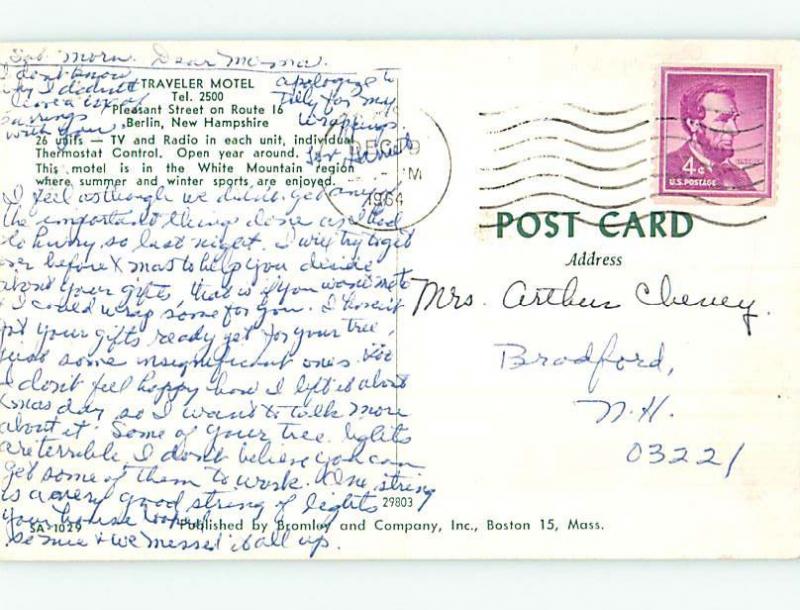 Sat. Morn. Dear Mama.
I don't know
why I didn't
leave a box of
earrings
with you.
apologize to
Tilly for my
wrappings.
TRAVELER MOTEL
Tel. 2500
Pleasant Street on Route 16
Berlin, New Hampshire
26 units — TV and Radio in each unit, individual
Thermostat Control. Open year around.
This motel is in the White Mountain region
where summer and winter sports are enjoyed.
I feel as though we didn't get any of
the important things done and had
to hurry so last night. I will try to get
over before Xmas to help you decide
about your gifts, that is if you want me to
& I could wrap some for you. I haven't
got your gifts ready yet for your tree,
just some insignificant ones.
I don't feel happy how I left it about
Xmas day so I want to talk more
about it. Some of your tree lights
are terrible. I don't believe you can
get some of them to work. One string
is a very good string of lights
Your house looked
so nice & we messed it all up.
29803
SA-1029
Published by Bromley and Company, Inc., Boston 15, Mass.
DEC 19
M
1964
4¢
U.S. POSTAGE
POST CARD
Address
Mrs. Arthur Cheney.
Bradford,
N.H.
03221